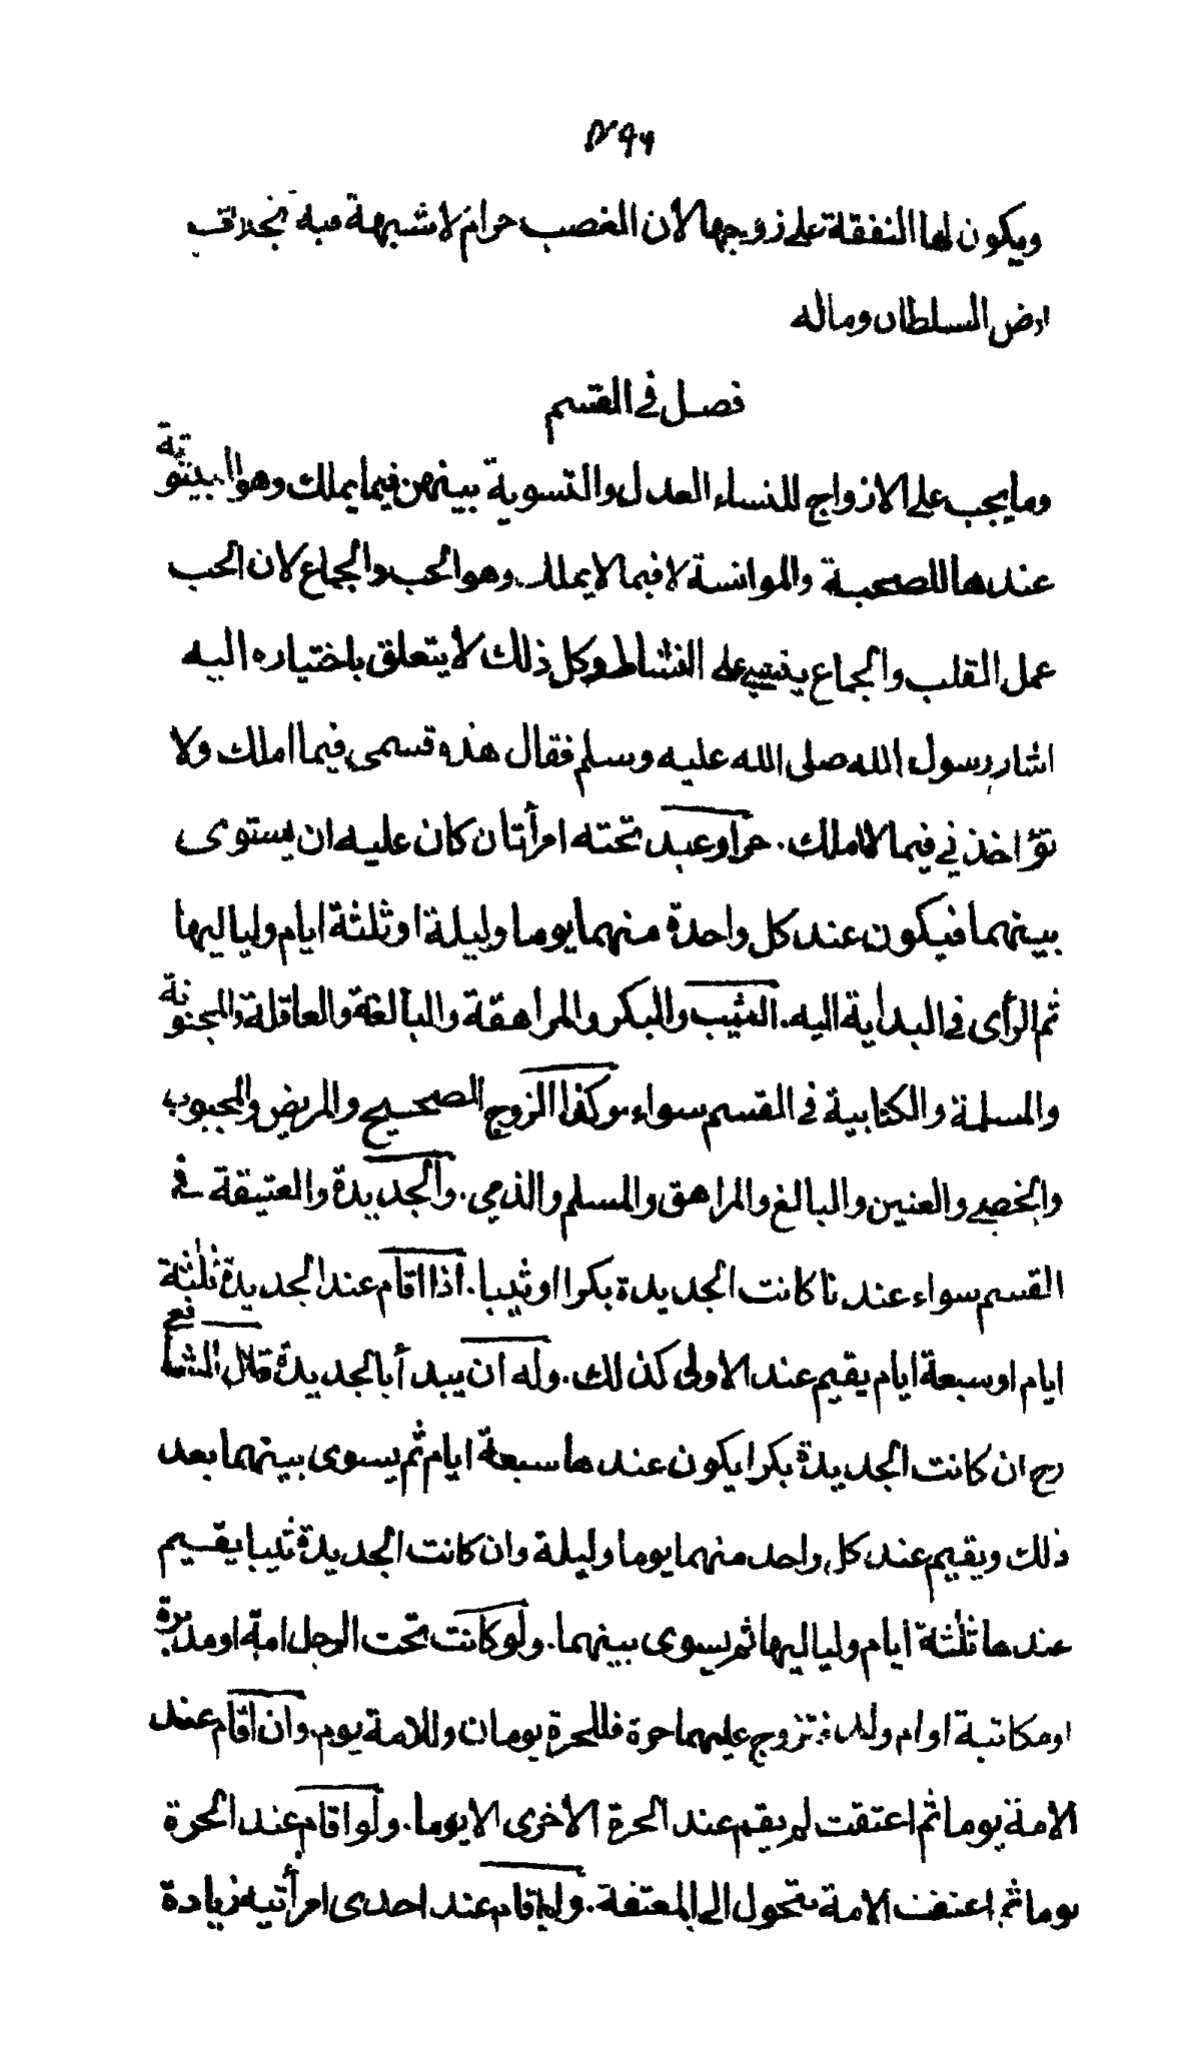 ٤٩٦
ويكون لها النفقة على زوجها لان الغصب حرام لا شبهة فيه بخلاف
ارض السلطان وماله
فصل في القسم
وما يجب على الازواج للنساء العدل والتسوية بينهن فيما يملك وهو البيتوتة
عندها للصحبة والموانسة لا فيما لا يملك وهو الحب والجماع لان الحب
عمل القلب والجماع يبتنى على النشاط وكل ذلك لا يتعلق باختياره اليه
اشار رسول الله صلى الله عليه وسلم فقال هذه قسمى فيما املك ولا
تؤاخذني فيما لا املك. حر او عبد تحته امرأتان كان عليه ان يستوى
بينهما فيكون عند كل واحدة منهما يوما وليلة او ثلثة ايام ولياليها
ثم الرأى في البداية اليه. الثيب والبكر والمراهقة والبالغة والعاقلة والمجنونة
والمسلمة والكتابية في القسم سواء وكذا الزوج الصحيح والمريض والمجبوب
والخصي والعنين والبالغ والمراهق والمسلم والذمي. والجديدة والعتيقة في
القسم سواء عندنا كانت الجديدة بكرا او ثيبا. اذا اقام عند الجديدة ثلثة
ايام او سبعة ايام يقيم عند الاولى كذلك. وله ان يبدأ بالجديدة قال الشافعي
رح ان كانت الجديدة بكرا يكون عندها سبعة ايام ثم يسوى بينهما بعد
ذلك ويقيم عند كل واحد منهما يوما وليلة وان كانت الجديدة ثيبا يقسيم
عندها ثلثة ايام ولياليها ثم يسوى بينهما. ولو كانت تحت الرجل امة او مدبرة
او مكاتبة او ام ولد فتزوج عليهما حرة فللحرة يومان وللامة يوم. وان اقام عند
الامة يوما ثم اعتقت لم يقم عند الحرة الاخرى الا يوما. ولو اقام عند الحرة
يوما ثم اعتقت الامة يتحول الى المعتقة. ولو اقام عند احدى امرأتيه زيادة